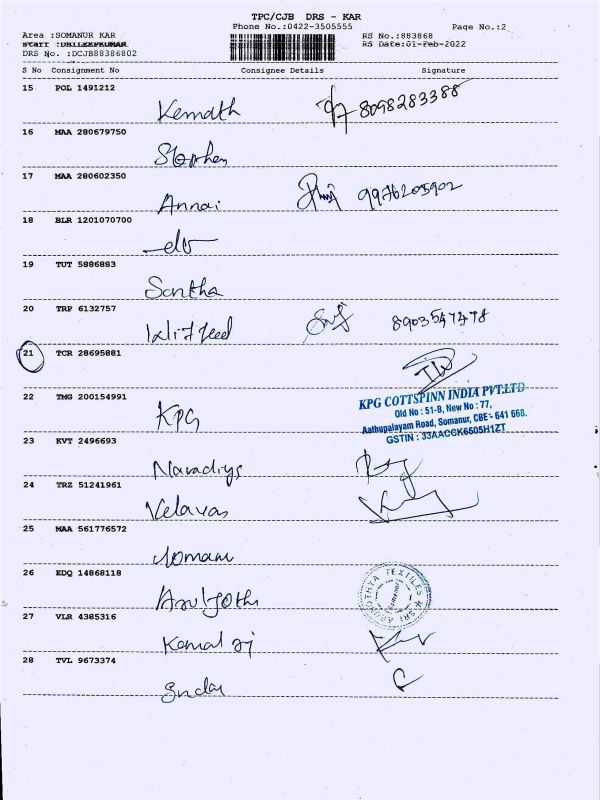 TPC/CJB DRS - KAR
Phone No.:0422-3505555 Page No.:2
Area :SOMANUR KAR RS No.:883868
Staff :DHILEEPKUMAR RS Date:01-Feb-2022
DRS No. :DCJB88386802
S No Consignment No Consignee Details Signature
15 POL 1491212
Kemath 8098283388
16 MAA 280679750
Stephen
17 MAA 280602350
Annai 9976205902
18 BLR 1201070700
-do-
19 TUT 5886883
Santha
20 TRP 6132757
8903547478
21 TCR 28695881
22 TMG 200154991
KPG
KPG COTTSPINN INDIA PVT.LTD
Old No : 51-B, New No : 77,
Aathupalayam Road, Somanur, CBE - 641 668.
GSTIN : 33AACGK6505H1ZT
23 KVT 2496693
Naradiys
24 TRZ 51241961
Velavan
25 MAA 561776572
26 EDQ 14868118
Aruljothi
SRI AGORTHYA TEXTILES
27 VLR 4385316
Kamal ji
28 TVL 9673374